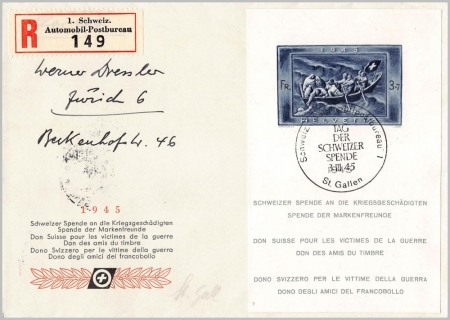 1. Schweiz.
Automobil-Postbureau
R 149
Werner Dressler
Zürich 6
Beckenhofstr. 46
1945
Schweizer Spende an die Kriegsgeschädigten
Spende der Markenfreunde
Don Suisse pour les victimes de la guerre
Dan des amis du timbre
Dono Svizzero per le vittime della guerra
Dono degli amici del francobollo
St. Gall
1945
FR. 3.-
HELVETIA
TAG
DER
SCHWEIZER
SPENDE
St. Gallen
SCHWEIZER SPENDE AN DIE KRIEGSGESCHÄDIGTEN
SPENDE DER MARKENFREUNDE
DON SUISSE POUR LES VICTIMES DE LA GUERRE
DON DES AMIS DU TIMBRE
DONO SVIZZERO PER LE VITTIME DELLA GUERRA
DONO DEGLI AMICI DEL FRANCOBOLLO